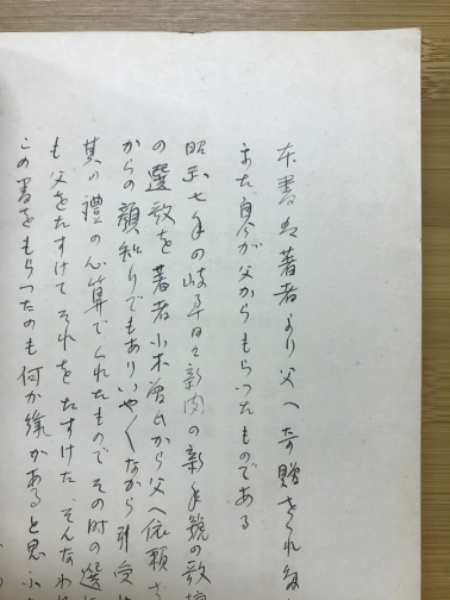 本書は著者より父へ寄贈され
また自分が父からもらったものである
昭和七年の岐阜日日新聞の新年号の歌壇
の選歌を著者小木曽氏から父へ依頼さ
からの顔知りでもありいやくながら引受
其の禮の心算でくれたものでその時の選
も父をたすけてそれをたすけた、そんなわけ
この書をもらったのも何か縁があると思ふ